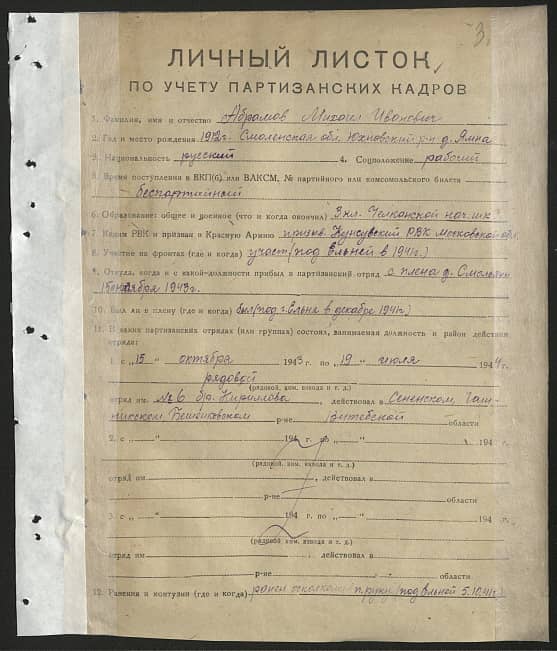 3.
ЛИЧНЫЙ ЛИСТОК
ПО УЧЕТУ ПАРТИЗАНСКИХ КАДРОВ
1. Фамилия, имя и отчество Абрамов Михаил Иванович
2. Год и место рождения 1912 г. Смоленская обл. Юхновский р-н д. Ямна
3. Национальность русский 4. Соцположение рабочий
5. Время поступления в ВКП(б) или ВЛКСМ, № партийного или комсомольского билета
беспартийный
6. Образование: общее и военное (что и когда окончил) 3 кл. нач. шк.
7. Каким РВК и призван в Красную Армию призыв. РВК Московской обл.
8. Участие на фронтах (где и когда) участ. (под Ельней в 1941 г.)
9. Откуда, когда и с какой должности прибыл в партизанский отряд с плена
15 октября 1943 г.
10. Был ли в плену (где и когда) был (под г. Ельня в декабре 1941 г.)
11. В каких партизанских отрядах (или группах) состоял, занимаемая должность и район действия
отряда:
1. с „15 " октября 1943 г. по „19 " июля 1944 г.
рядовой
(рядовой, ком. взвода и т. д.)
отряд им. № 6 бр. Кириллова, действовал в Сененском,
Бешенковском р-не Витебской области
2. с „ " 194 г. по „ " 194 г.
(рядовой, ком. взвода и т. д.)
отряд им. , действовал в
р-не области
3. с „ " 194 г. по „ " 194 г.
(рядовой, ком. взвода и т. д.)
отряд им. , действовал в
р-не области
12. Ранения и контузии (где и когда) ранен осколком п. руки (под Ельней 5.10.41 г.)